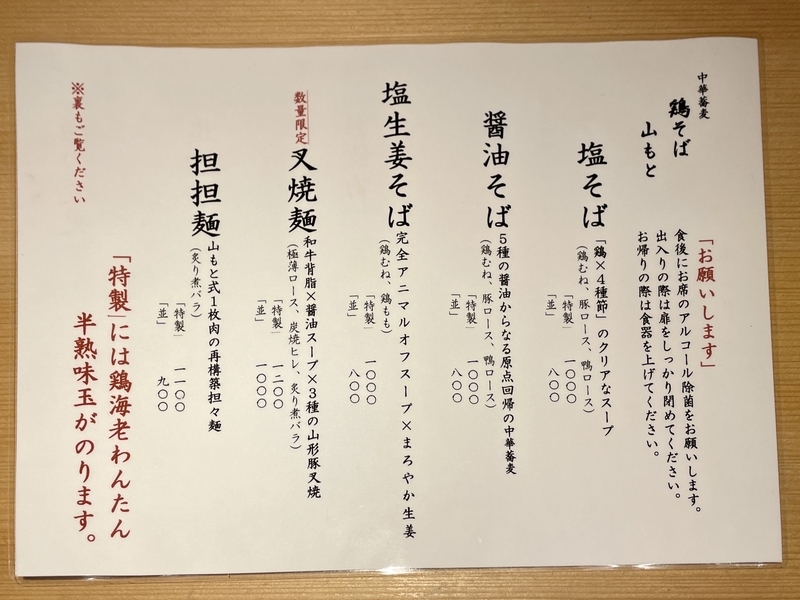 中華蕎麦
鶏そば
山もと
「お願いします」
食後にお席のアルコール除菌をお願いします。
出入りの際は扉をしっかり閉めてください。
お帰りの際は食器を上げてください。
塩そば
「鶏×4種節」のクリアなスープ
(鶏むね、豚ロース、鴨ロース)
「特製」 一〇〇〇
「並」 八〇〇
醤油そば
5種の醤油からなる原点回帰の中華蕎麦
(鶏むね、豚ロース、鴨ロース)
「特製」 一〇〇〇
「並」 八〇〇
塩生姜そば
完全アニマルオフスープ×まろやか生姜
(鶏むね、鶏もも)
「特製」 一〇〇〇
「並」 八〇〇
数量限定
叉焼麺
和牛背脂×醤油スープ×3種の山形豚叉焼
(極薄ロース、炭焼ヒレ、炙り煮バラ)
「特製」 一二〇〇
「並」 一〇〇〇
担担麺
山もと式1枚肉の再構築担々麺
(炙り煮バラ)
「特製」 一一〇〇
「並」 九〇〇
「特製」には鶏海老わんたん
半熟味玉がのります。
※裏もご覧ください